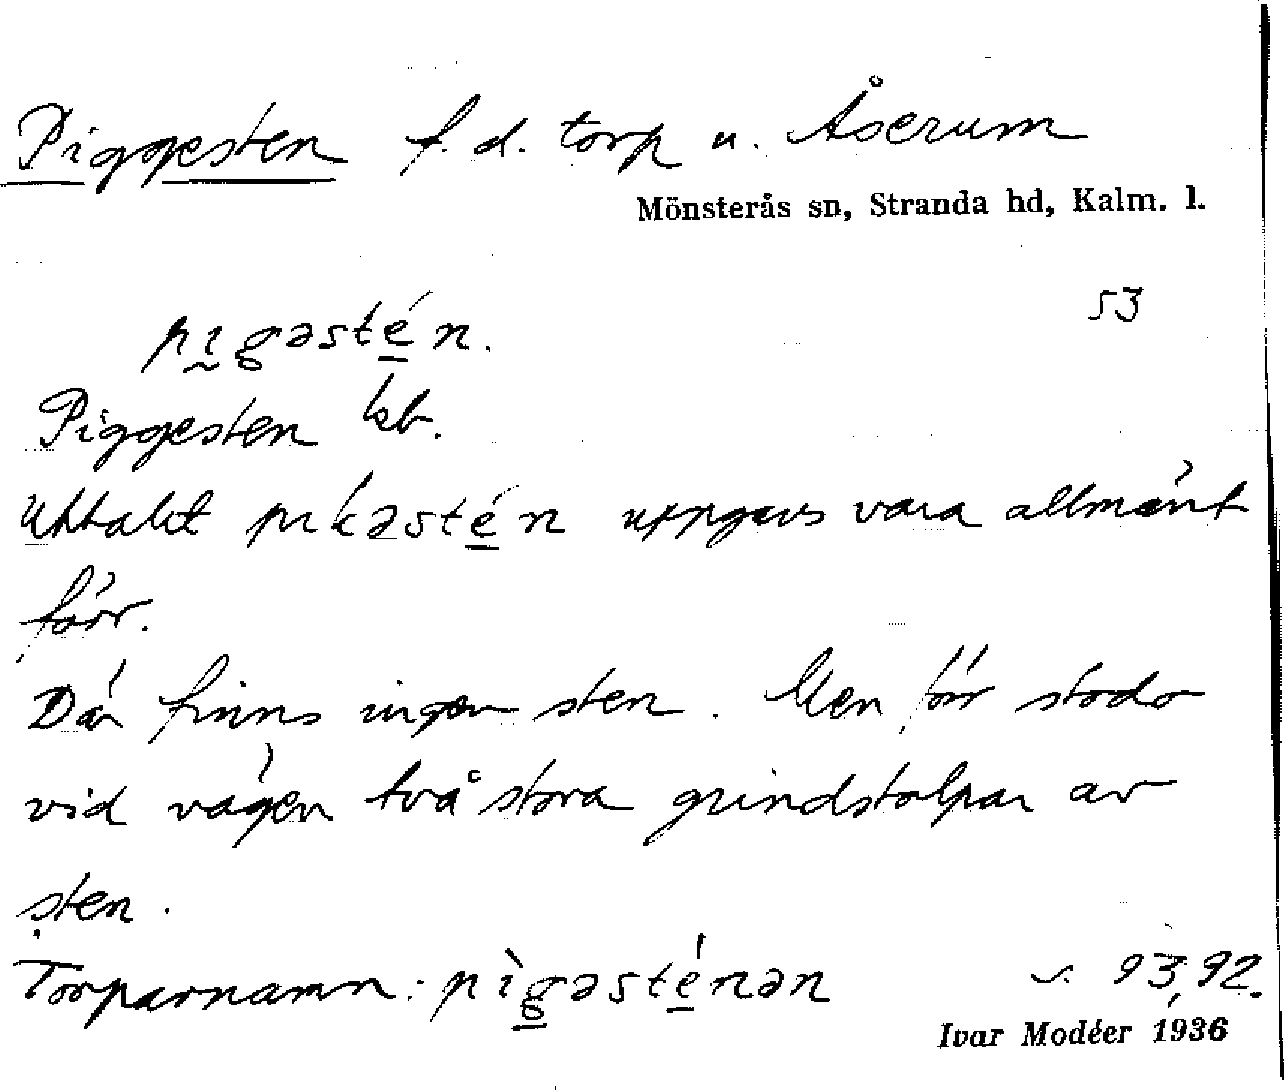 Piggesten f. d. torp u. Åserum
Mönsterås sn, Stranda hd, Kalm. l.
53
pıgəsté̱n.
Piggesten kb.
Uttalet pıkəsté̱n uppgavs vara allmänt
förr.
Där finns ingen sten. Men förr stodo
vid vägen två stora grindstolpar av
sten.
Torparnamn: pìg̱əsté̱nən
s. 93, 92.
Ivar Modéer 1936